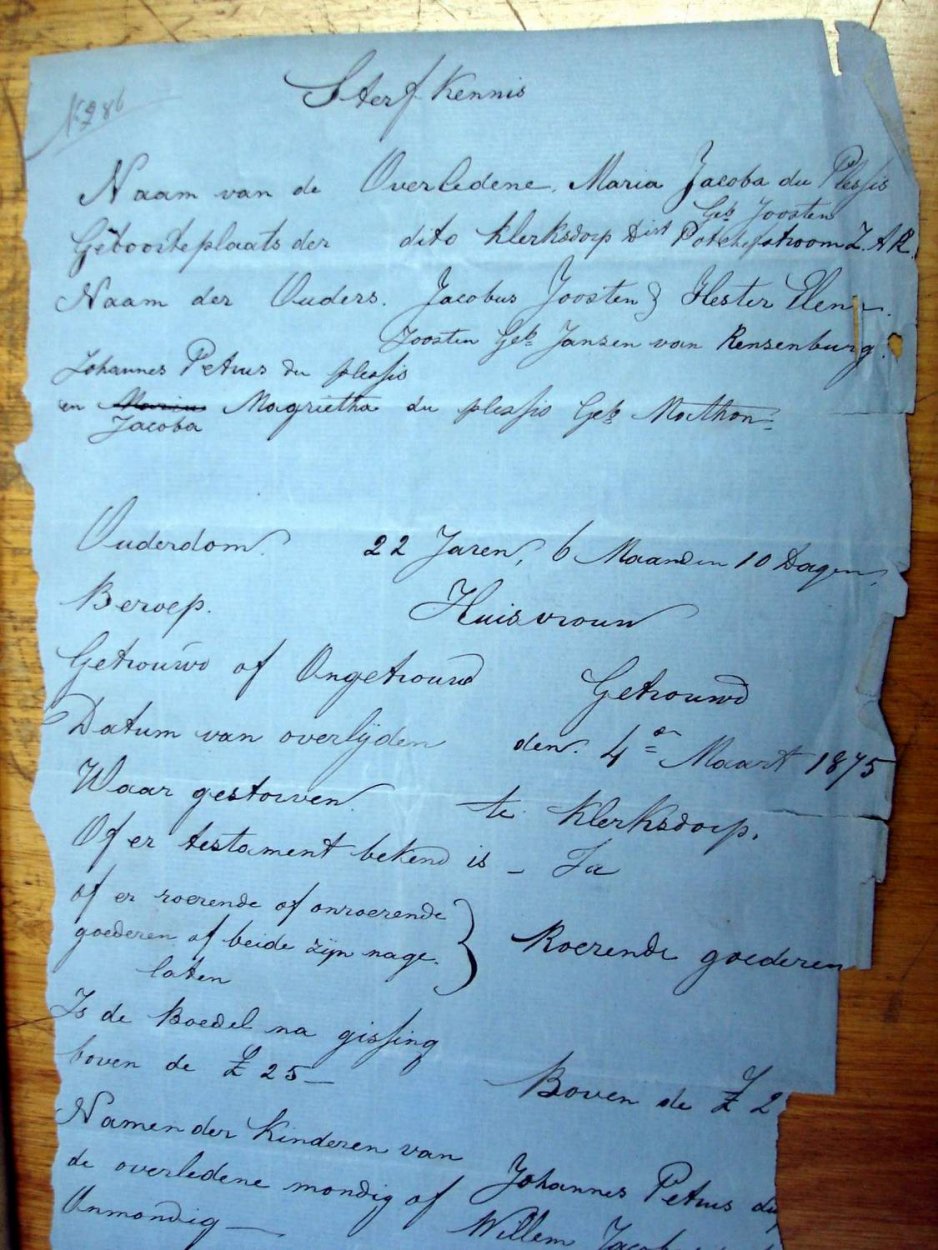 No 286
Sterf Kennis
Naam van de Overledene. Maria Jacoba du Plessis
Geb Joosten
Geboorteplaats der dito Klerksdorp Dist Potchefstroom Z.A.R.
Naam der Ouders. Jacobus Joosten & Hester
Joosten Geb Jansen van Rensenburg.
Johannes Petrus du plessis
en Magrietha du plessis Geb
Jacoba
Ouderdom. 22 Jaren, 6 Maanden 10 Dagen,
Beroep. Huisvrouw
Getrouwd of Ongetrouwd Getrouwd
Datum van overlijden den 4en Maart 1875
Waar gestorven. te Klerksdorp.
Of er testament bekend is – Ja
of er roerende of onroerende
goederen of beide zijn nage. } Roerende goederen
laten
Is de Boedel na gissing
boven de £ 25 – Boven de £ 2
Namen der Kinderen van
de overledene mondig of Johannes Petrus du
Onmondig – Willem Jacob